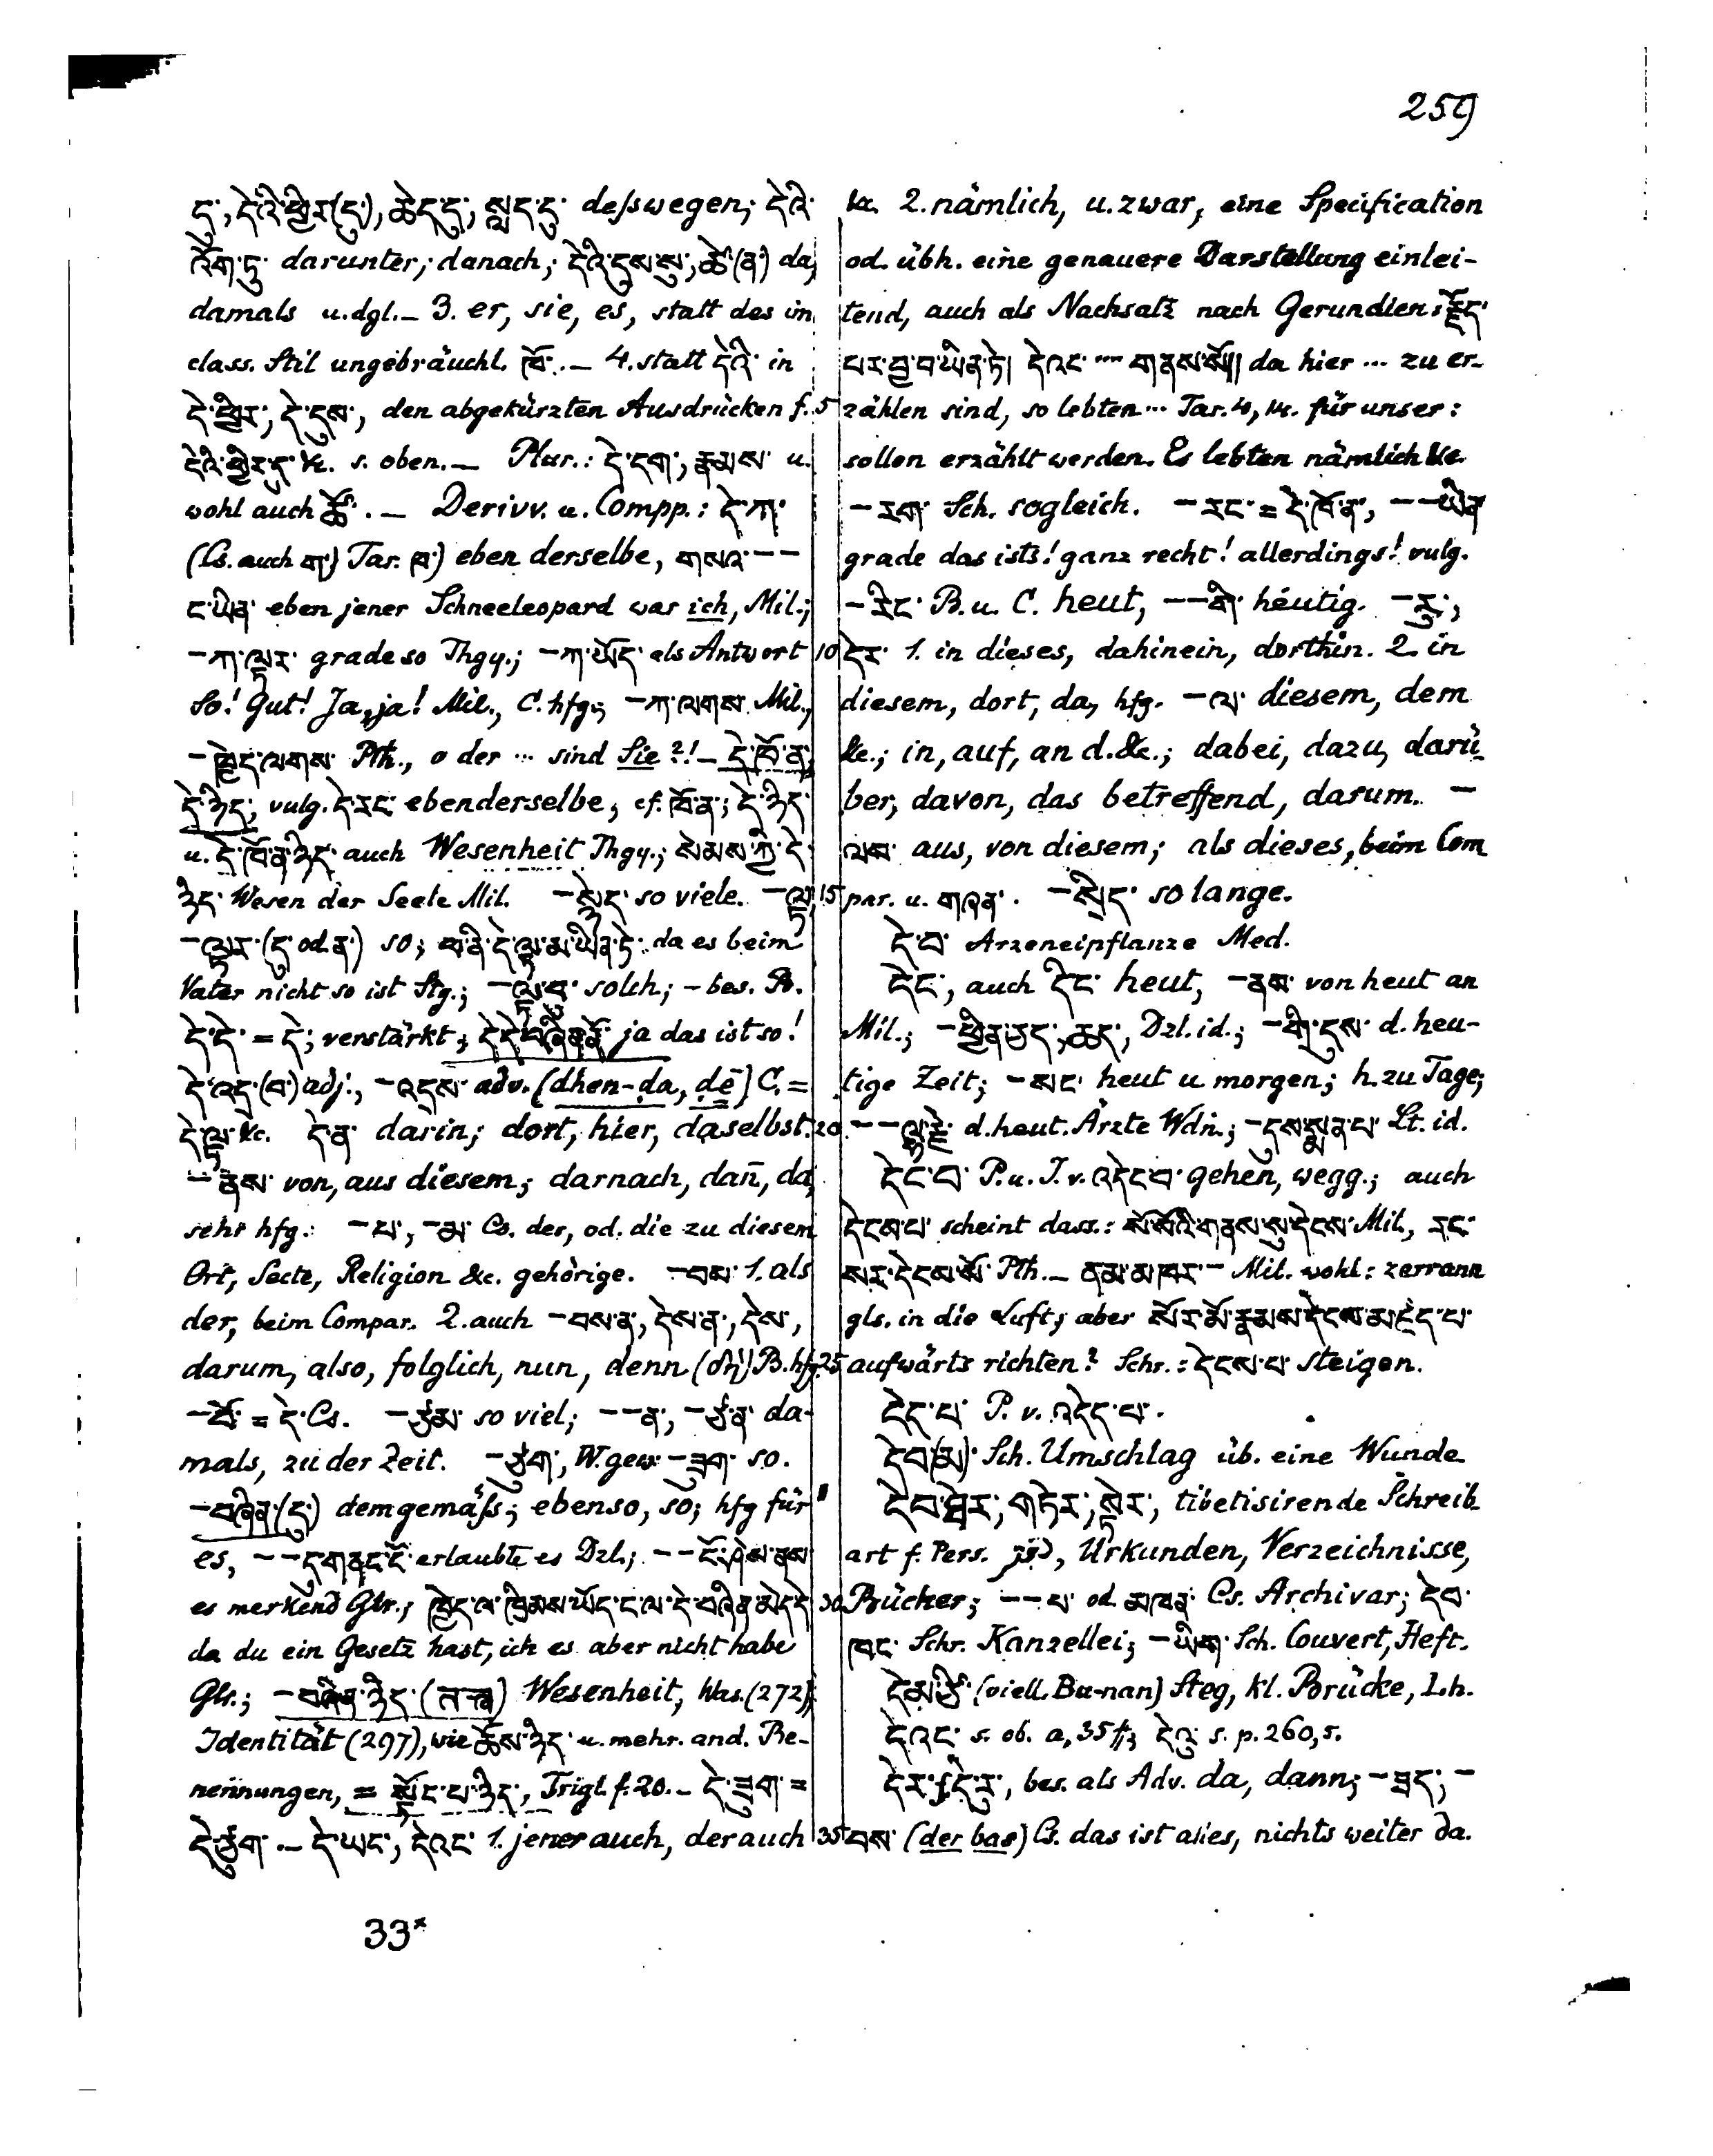 259
དུ་, དེའི་ཕྱིར་(དུ་), ཆེད་དུ་, སླད་དུ་ deſswegen; དེའི་
འོག་ཏུ་ darunter; danach; དེའི་དུས་སུ་, ཚེ་(ན་) da,
damals u.dgl. – 3. er, sie, es, statt des im
class. Stil ungebräuchl. ཁོ་. – 4. statt དེའི་ in
དེ་ཕྱིར་, དེ་དུས་, den abgekürzten Ausdrücken f.
དེའི་ཕྱིར་དུ་ &c. s. oben. – Plur.: དེ་དག་, རྣམས་ u.
wohl auch ཚོ་. – Derivv. u. Compp.: དེ་ཀ་
(Cs. auch ག་) Tar. ཁ་) eben derselbe, གསའ་ – –
ང་ཡིན་ eben jener Schneeleopard war ich, Mil.;
– ཀ་ལྟར་ grade so Thgy.; – ཀ་ཡོད་ als Antwort
So! Gut! Ja, ja! Mil., C. hfg.; – ཀ་ལགས་ Mil.,
– ཁྱེད་ལགས་ Pth., o der ... sind Sie?! – དེ་ཁོ་ན་,
དེ་ཉིད་, vulg. དེ་རང་ ebenderselbe, cf. ཁོ་ན་; དེ་ཉིད་
u. དེ་ཁོ་ན་ཉིད་ auch Wesenheit Thgy.; སེམས་ཀྱི་དེ་
ཉིད་ Wesen der Seele Mil. – སྙེད་ so viele. – ལྟ་,
– ལྟར་ (དུ་ od. ན་) so; ཕ་ནི་དེ་ལྟ་མ་ཡིན་ཏེ་ da es beim
Vater nicht so ist Stg.; – ལྟ་བུ་ solch; – bes. B.
དེ་དེ་ = དེ་; verstärkt; དེ་དེ་བཞིན་ནོ་ ja das ist so!
དེ་འདྲ་(བ་) adj., – འདྲས་ adv. (dhen-da, dē) C. =
དེ་ལྟ་ &c. དེ་ན་ darin; dort, hier, daselbst.
– ནས་ von, aus diesem; darnach, dan̄, da,
sehr hfg.: – པ་, – མ་ Cs. der, od. die zu diesem
Ort, Secte, Religion &c. gehörige. – བས་ 1. als
der, beim Compar. 2. auch – བས་ན་, དེས་ན་, དེས་,
darum, also, folglich, nun, denn (δή) B. hfg.
– པོ་ = དེ་ Cs. – ཙམ་ so viel; – – ན་, – ཙ་ན་ da-
mals, zu der Zeit. – ཙུག་, W. gew. – ཟུག་ so.
– བཞིན་(དུ་) demgemäſs; ebenso, so; hfg für
es, – – དུ་གནང་ངོ་ erlaubte es Dzl.; – – ངོ་ཤེས་ནས་
es merkend Glr.; ཁྱེད་ལ་ཁྲིམས་ཡོད་ང་ལ་དེ་བཞིན་མེད་དེ་
da du ein Gesetz hast, ich es aber nicht habe
Glr.; – བཞིན་ཉིད་ Wesenheit, Was. (272),
Identität (297), wie ཆོས་ཉིད་ u. mehr. and. Be-
nennungen, = སྟོང་པ་ཉིད་, Trigl. f. 20. – དེ་ཟུག་ =
དེ་ཙུག་ . – དེ་ཡང་, དེའང་ 1. jener auch, der auch
&c. 2. nämlich, u. zwar, eine Specification
od. übh. eine genauere Darstellung einlei-
tend, auch als Nachsatz nach Gerundien: རྗོད་
པར་བྱ་བ་ཡིན་ཏེ། དེའང་ .... གནས་སོ།། da hier ... zu er-
5 zählen sind, so lebten ... Tar. 4, 14. für unser:
sollen erzählt werden. Es lebten nämlich &c.
– རག་ Sch. sogleich. – རང་ = དེ་ཁོ་ན་, – – ཡིན་
grade das ists! ganz recht! allerdings! vulg.
– རིང་ B. u. C. heut, – – གི་ heutig. – རུ་,
10 དེར་ 1. in dieses, dahinein, dorthin. 2. in
diesem, dort, da, hfg. – ལ་ diesem, dem
&c.; in, auf, an d. &c.; dabei, dazu, darü-
ber, davon, das betreffend, darum. –
ལས་ aus, von diesem; als dieses, beim Com
15 par. u. གཞན་. – སྲིད་ so lange.
དེ་བ་ Arzeneipflanze Med.
དེང་, auch དིང་ heut, – ནས་ von heut an
Mil.; – ཕྱིན་ཆད་, ཆད་, Dzl. id.; – གི་དུས་ d. heu-
tige Zeit; – སང་ heut u. morgen; h. zu Tage;
20 – – ལྷ་རྗེ་ d. heut. Ärzte Wdṅ.; – དུས་སྨན་པ་ Lt. id.
དེང་བ་ P. u. I. v. འདེང་བ་ gehen, wegg.; auch
དེངས་པ་ scheint dass.: སོ་སོའི་གནས་སུ་དེངས་ Mil., རང་
སར་དེངས་སོ་ Pth. – ནམ་མཁར་ – Mil. wohl: zerrann
gls. in die Luft; aber སོར་མོ་རྣམས་དེངས་མ་རྗེད་པ་
25 aufwärts richten? Schr.: དེངས་པ་ steigen.
དེད་པ་ P. v. འདེད་པ་.
དེབ་(མ་) Sch. Umschlag üb. eine Wunde
དེབ་ཐེར་, གཏེར་, སྟེར་, tibetisirende Schreib
art f. Pers. دفتر, Urkunden, Verzeichnisse,
30 Bücher; – – པ་ od. མཁན་ Cs. Archivar; དེབ་
ཁང་ Schr. Kanzellei; – ཡིག་ Sch. Couvert, Heft.
དེམ་ཙི་ (viell. Bu-nan) Steg, kl. Brücke, L.h.
དེའང་ s. ob. a, 35 ff; དེའུ་ s. p. 260, 5.
དེར་ f. དེ་རུ་, bes. als Adv. da, dann; – ཟད་, –
35 བས་ (der bas) Cs. das ist alles, nichts weiter da.
33*